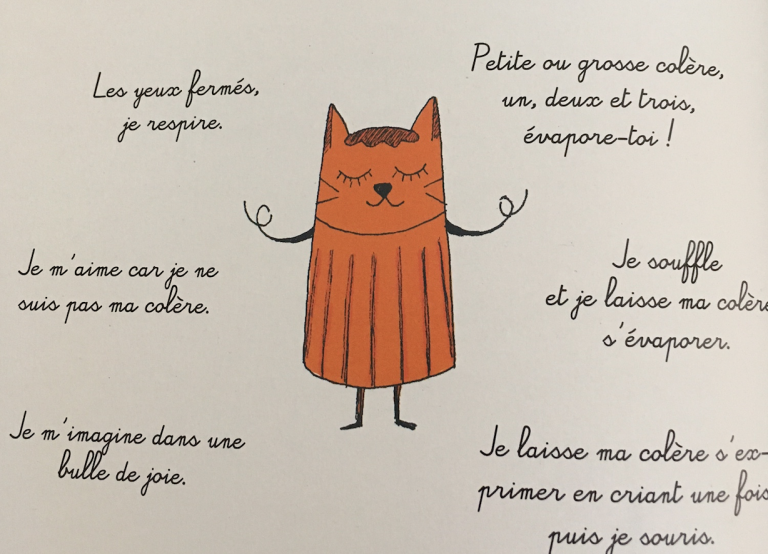 Les yeux fermés,
je respire.
Petite ou grosse colère,
un, deux et trois,
évapore-toi !
Je m'aime car je ne
suis pas ma colère.
Je souffle
et je laisse ma colère
s'évaporer.
Je m'imagine dans une
bulle de joie.
Je laisse ma colère s'ex-
primer en criant une fois
puis je souris.